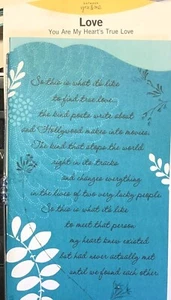 Love
You Are My Heart's True Love
So this is what it's like
to find true love...
the kind poets write about
and Hollywood makes into movies.
The kind that stops the world
right in its tracks
and changes everything
in the lives of two very lucky people.
So this is what it's like
to meet that person
my heart knew existed
but had never actually met
until we found each other.